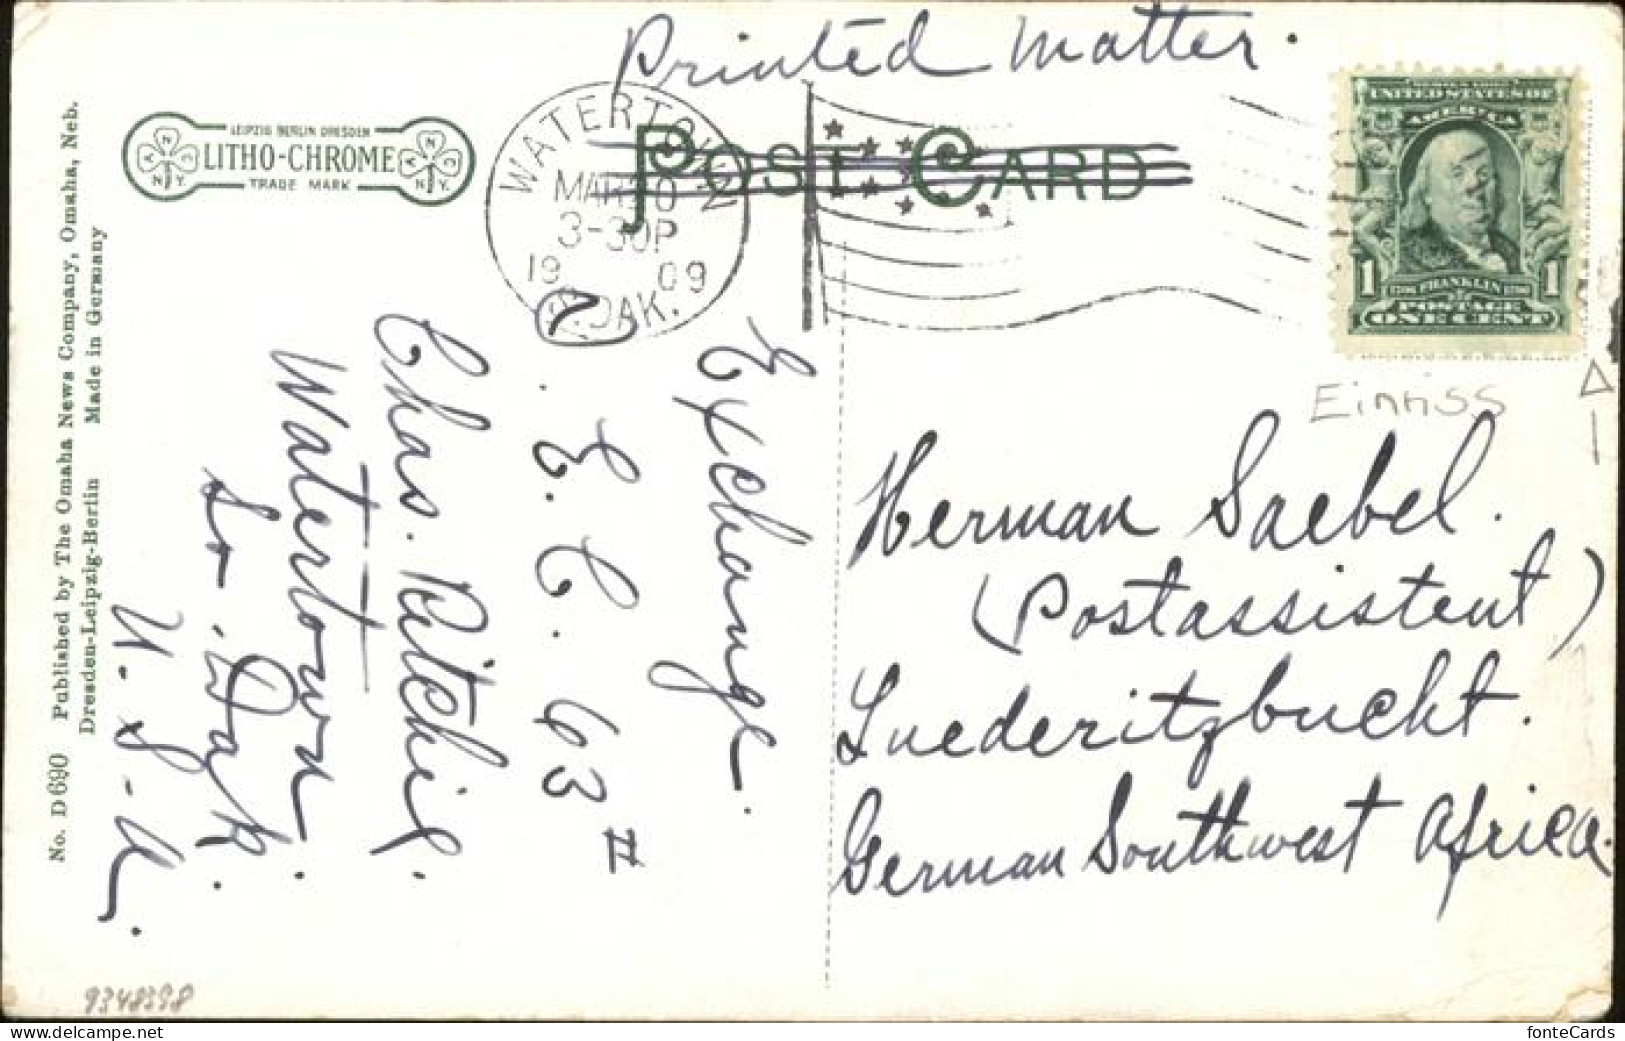 Printed Matter.
LEIPZIG BERLIN DRESDEN
LITHO-CHROME
TRADE MARK
POST CARD
WATERTOWN
MAR 10
3-30P
19 09
S. DAK.
UNITED STATES OF
AMERICA
1 FRANKLIN 1
POSTAGE
ONE CENT
Einriss
Herman Saebel.
(Postassistent)
Luederitzbucht.
German Southwest Africa.
Exchange.
E. C. 63 II
Chas. Ritchie.
Watertown
So. Dak.
U. S. A.
No. D690 Published by The Omaha News Company, Omaha, Neb.
Dresden-Leipzig-Berlin Made in Germany
9348398
fonteCards